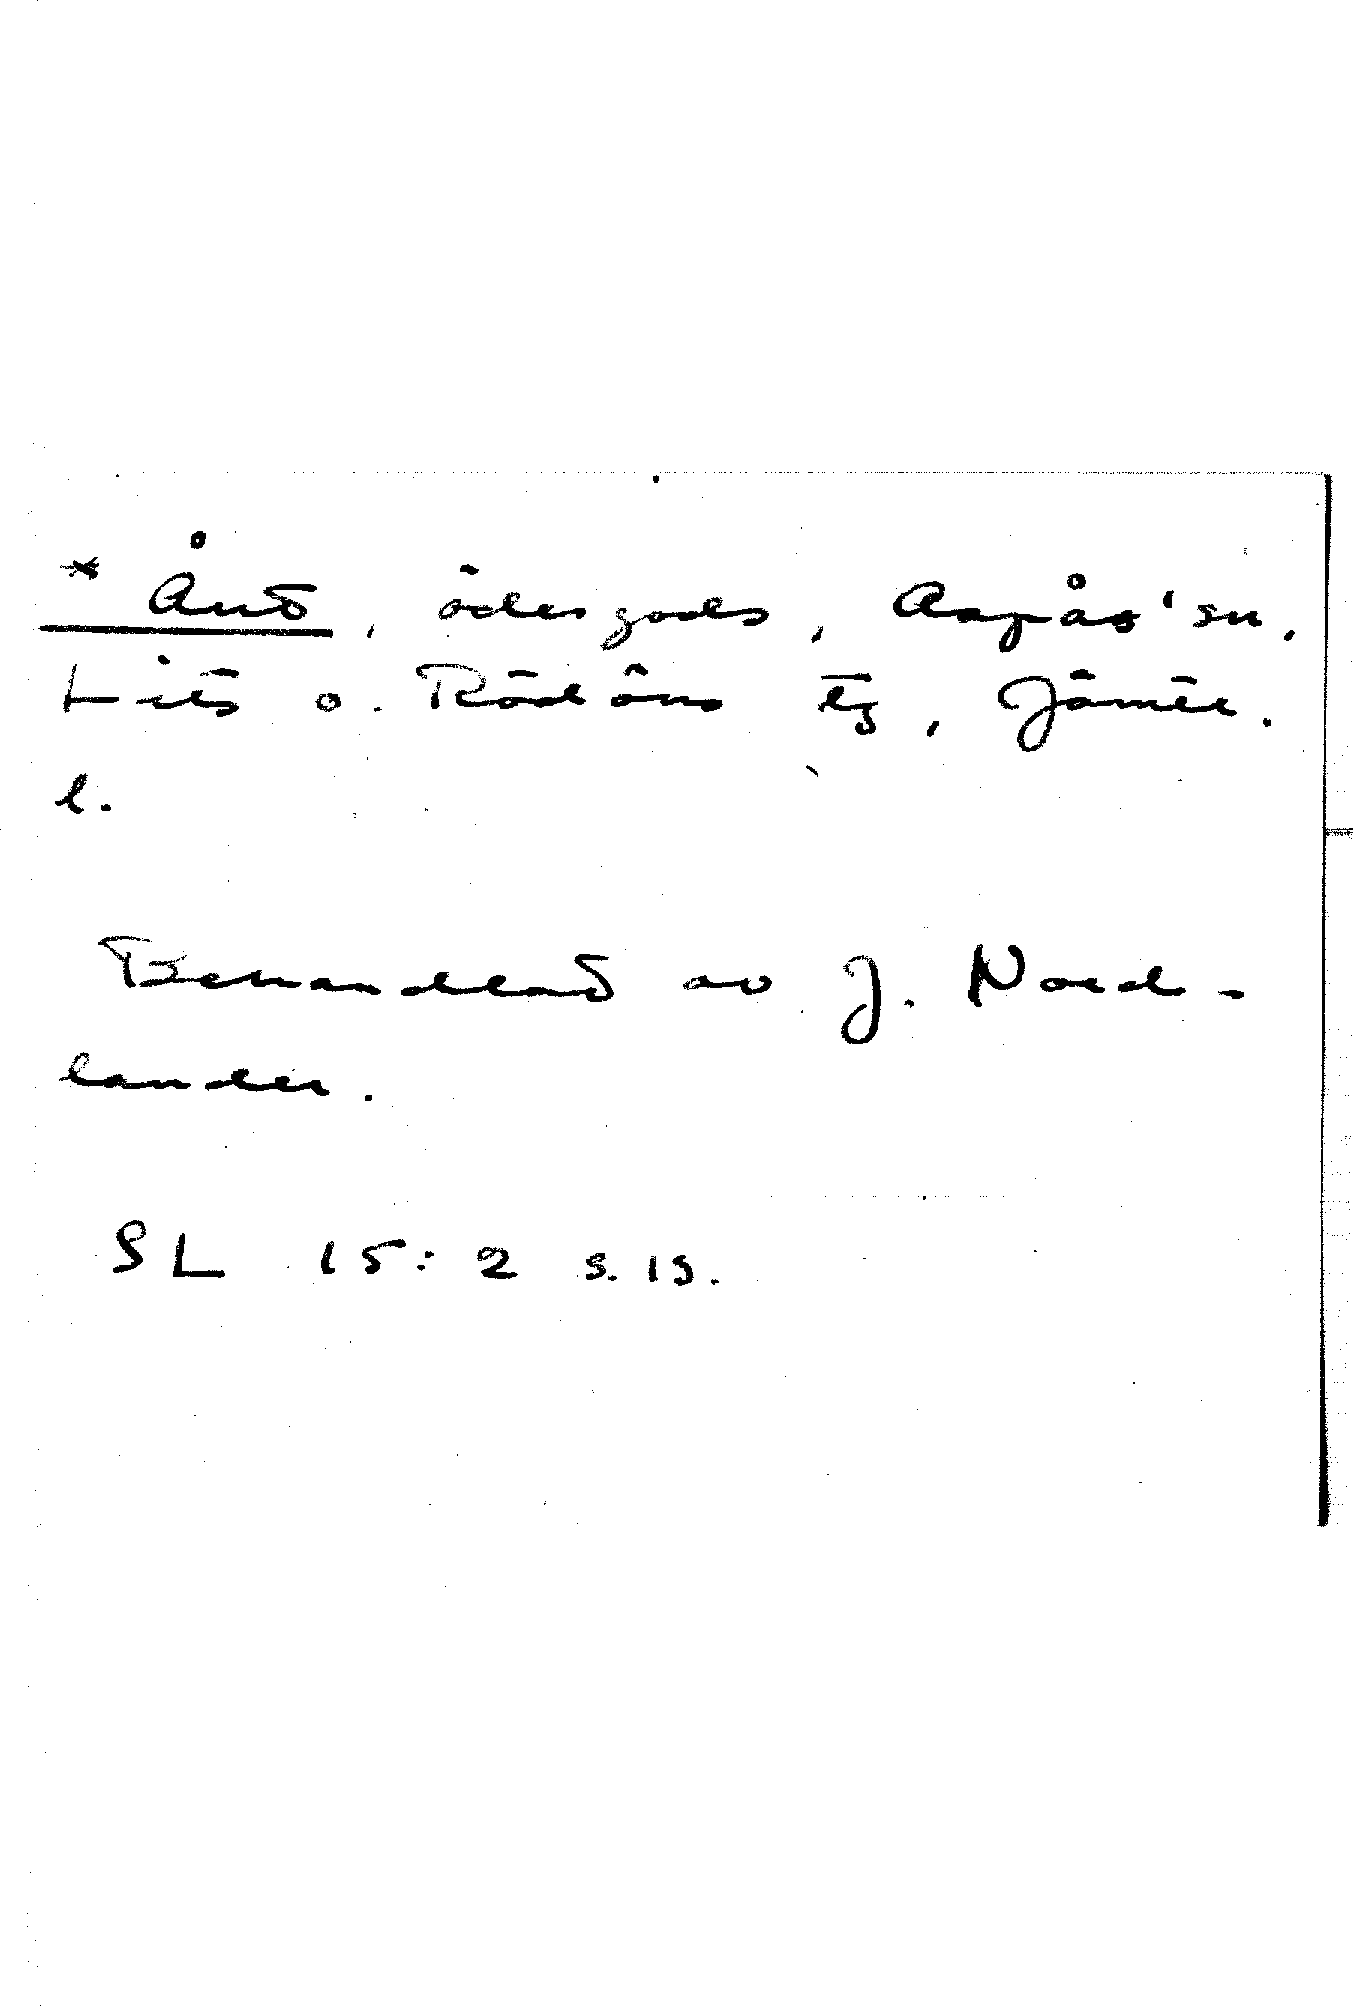 * Ånd, ödesgods, Aspås' sn,
Lits o. Rödöns tg, Jämtl.
l.
Behandlad av J. Nord-
lander.
SL 15:2 s. 15.